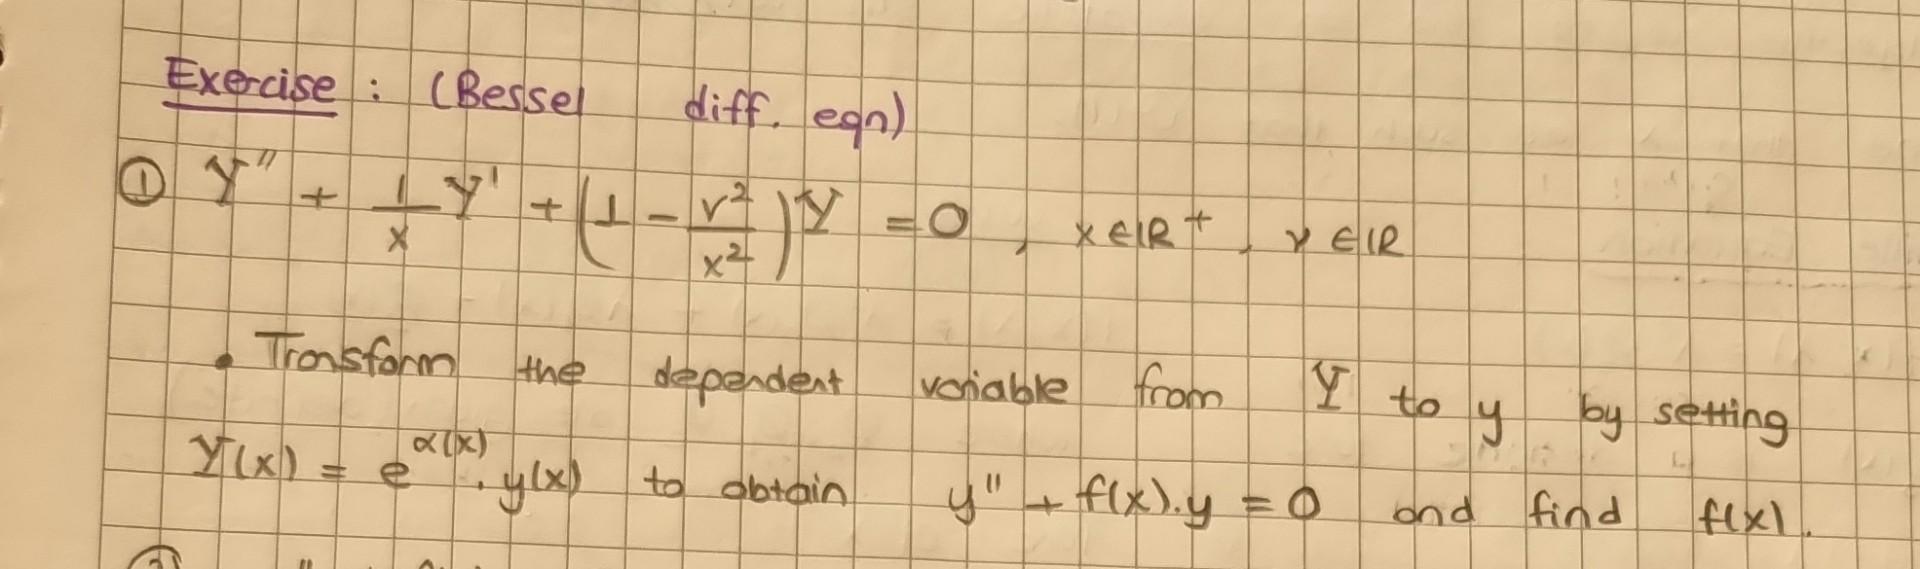 Exercise : (Bessel diff. eqn)
① Y'' + 1/x Y' + (1 - ν²/x²) Y = 0 , x ∈ ℝ⁺ , ν ∈ ℝ
• Transform the dependent variable from Y to y by setting
Y(x) = e^α(x) . y(x) to obtain y'' + f(x).y = 0 and find f(x).